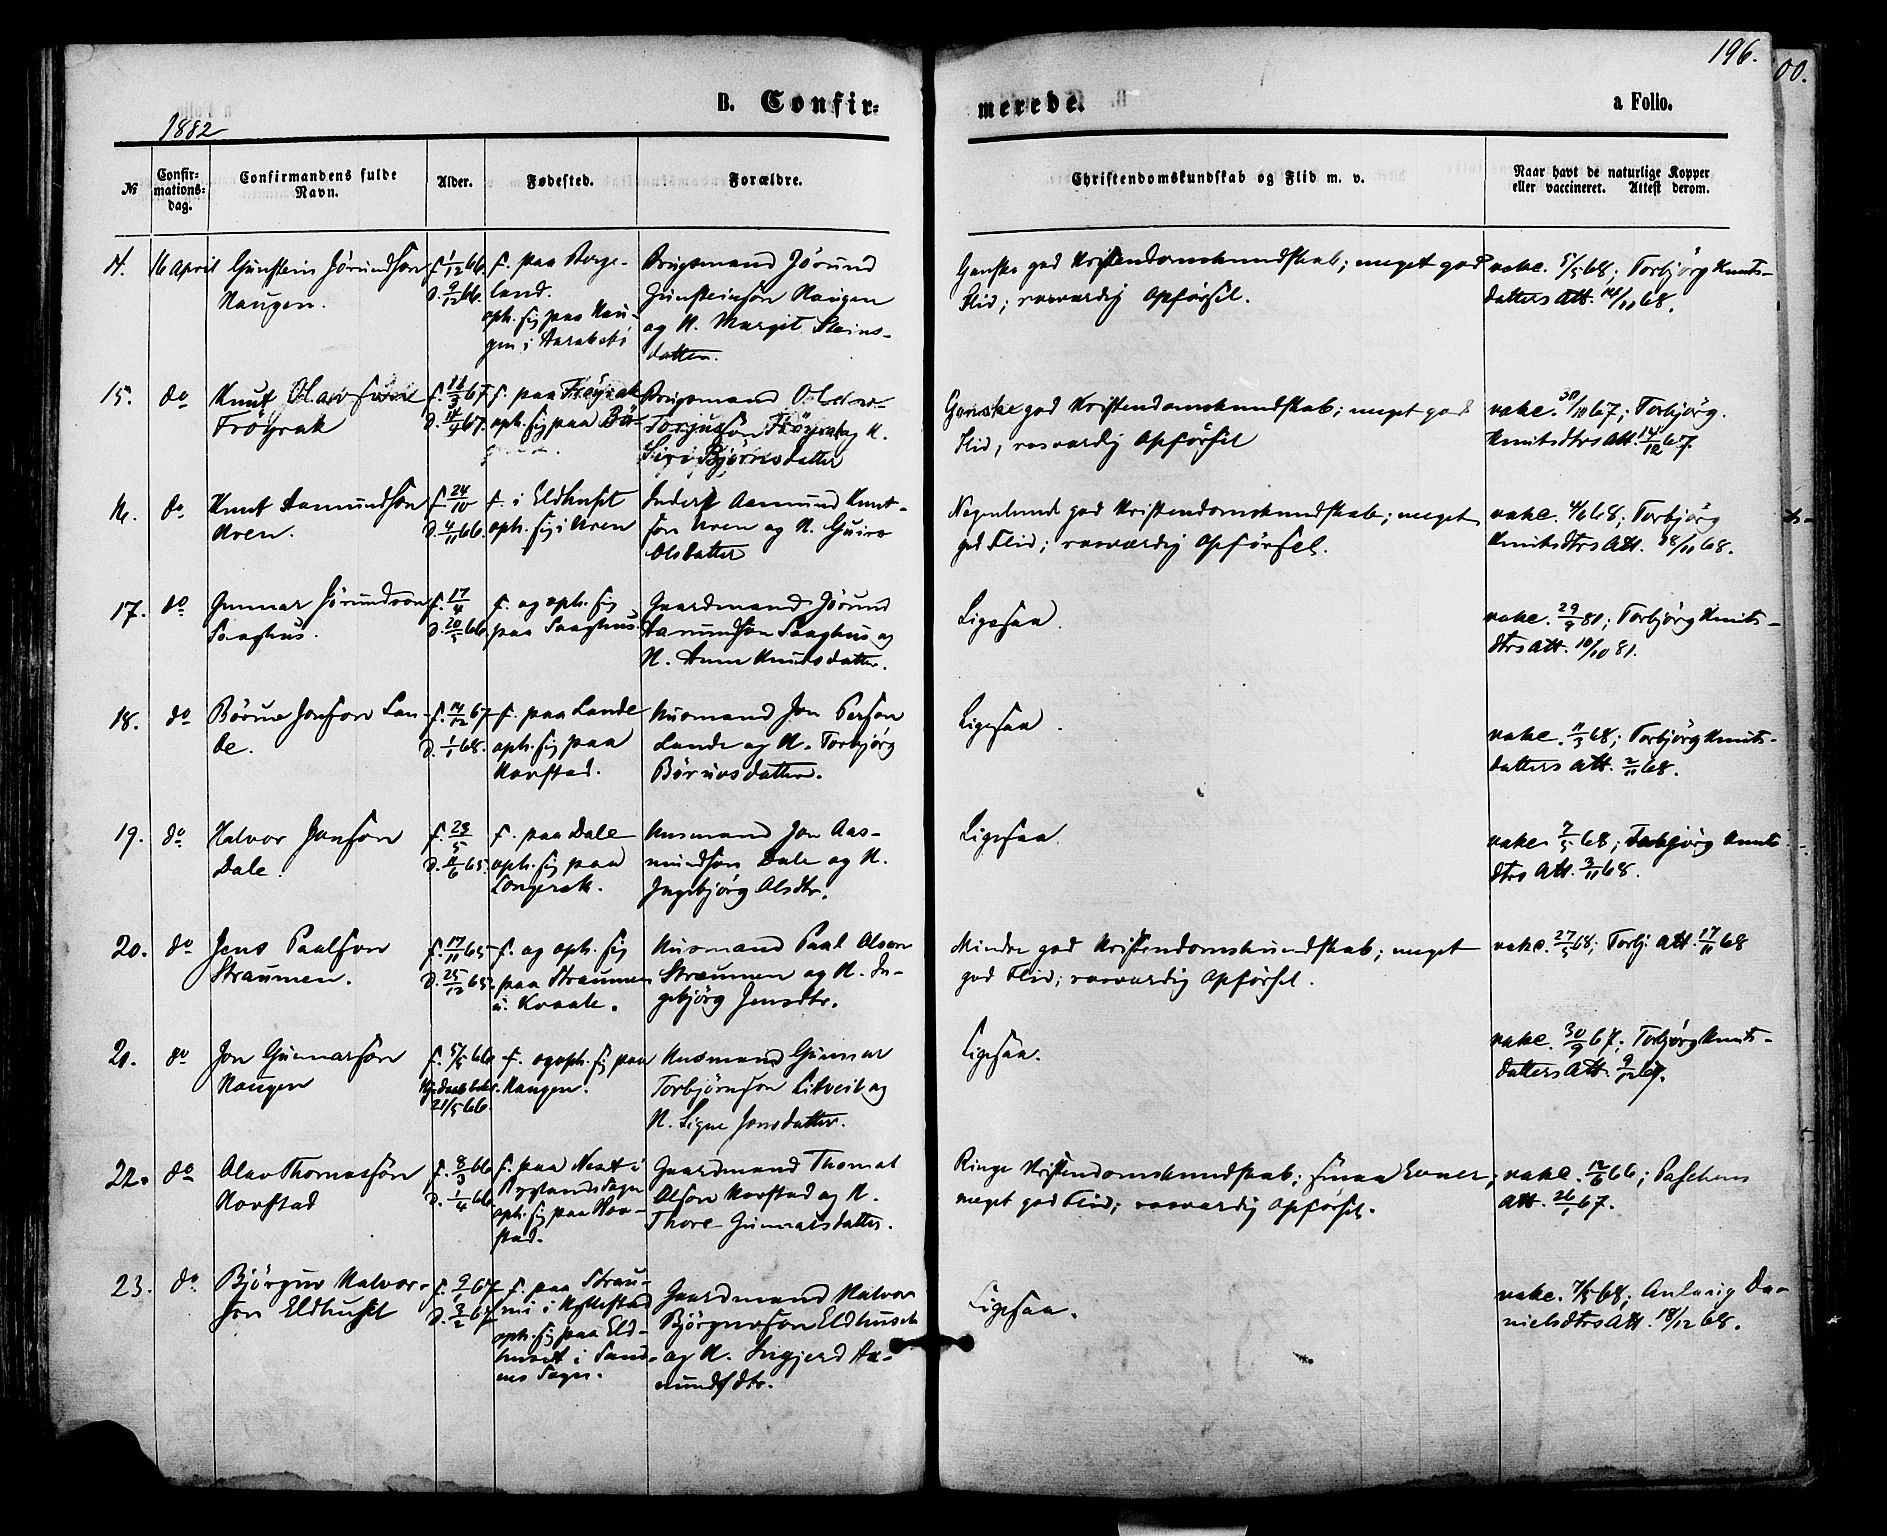 196.
00.
B. Confir=
merede.
a Folio.
1882
№
Confir-
mations-
dag.
Confirmandens fulde
Navn.
Alder.
Fødested.
Forældre.
Christendomskundskab og Flid m. v.
Naar havt de naturlige Kopper
eller vaccineret. Attest derom.
16 April Gunstein Jörundsön
Haugen.
f. 1/12 66.
d. 9/12 66.
f. paa Berge-
land.
oph. sig paa Hau-
gen i
Brugsmand Jörund
Gunsteinsön Haugen
og H. Margit Steins-
datter.
Ganske god Kristendomskundskab; meget god
Flid; rosværdig Opförsel.
vakc. 5/5 68; Torbjörg Knuts-
datters Att. 68.
15. do Knut Olavsön
Fröyrak
f. 67.
d. 14/4 67.
f. paa Fröyrak
oph. sig paa
Brugsmand
Torjussön Fröyrak og H.
Siri Björnsdatter
Ganske god Kristendomskundskab; meget god
Flid, rosværdig Opförsel
vakc. 30/10 67; Torbjörg
Knutsdtrs Att. 14/12 67.
16. do Knut Aamundsön
Uren.
f. 24/10
d. 4/11 66.
f. i Eldhuset
oph. sig i Uren
Inderst Aamund Knut-
sön Uren og H. Guro
Olsdatter
Nogenlunde god Kristendomskundskab; meget
god Flid; rosværdig Opförsel.
vakc. 4/6 68; Torbjörg
Knutsdtrs Att. 18/11 68.
17. do Gunnar Jörundson
Saaghus.
f. 17/4
d. 20/5 66.
f. og oph. sig
paa Saaghus.
Gaardmand Jörund
Saaghus og
H. Anne Knutsdatter.
Ligesaa.
vakc. 29/9 81; Torbjörg Knuts-
dtrs Att. 10/10 81.
18. do Börue Jonson Lan-
de.
f. 14/12 67
d. 1/1 68.
f. paa Lande
oph. sig paa
Horstad.
Husmand Jon Person
Lande og H. Torbjörg
Böruvsdatter.
Ligesaa.
vakc. 11/3 68; Torbjörg Knuts-
datters Att. 2/11 68.
19. do Halvor Jonson
Dale.
f. 23/5
d. 11/6 65.
f. paa Dale
oph. sig paa
Longerak.
Husmand Jon Aas-
mundsön Dale og H.
Ingebjörg Olsdtr.
Ligesaa.
vakc. 7/5 68; Torbjörg Knuts
dtrs Att. 3/11 68.
20. do Jens Paalson
Straumen.
f. 17/11 65
d. 25/12 65.
f. og oph. sig
paa Straumen
u. Kvaale.
Husmand Paal Olson
Straumen og H. In-
gebjörg Jensdtr.
Mindre god Kristendomskundskab; meget
god Flid; rosværdig Opförsel.
vakc. 27/5 68; Torbj. Att. 17/11 68
21. do Jon Gunnarson
Haugen
f. 5/5 66
21/5 66.
f. og oph. sig paa
Haugen.
Husmand Gunnar
Torbjörnson Litveit og
H. Signe Jonsdatter.
Ligesaa.
vakc. 30/9 67; Torbjörg Knuts-
datters Att. 67.
22. do Olav Thomassön
Horstad
f. 8/3 66
d. 1/4 66
f. paa Neset i
Byglands Sogn
oph. sig paa Hor-
stad.
Gaardmand Thomas
Olson Horstad og H.
Thore Gunnarsdatter.
Ringe Kristendomskundskab; smaa Evner;
meget god Flid; rosværdig Opförsel.
vakc. 12/6 66; Paschens
Att. 26/1 67.
23. do Björguv Halvor-
son Eldhuset
f. 9/1 67
d. 3/2 67
f. paa Strau-
me i Hyllestad
oph. sig paa Eld-
huset i Sand-
nes Sogn.
Gaardmand Halvor
Björguvson Eldhuset
og H. Ingjerd Aa-
mundsdtr.
Ligesaa.
vakc. 7/5 68; Anlaug Da-
nielsdtrs Att. 18/12 68.